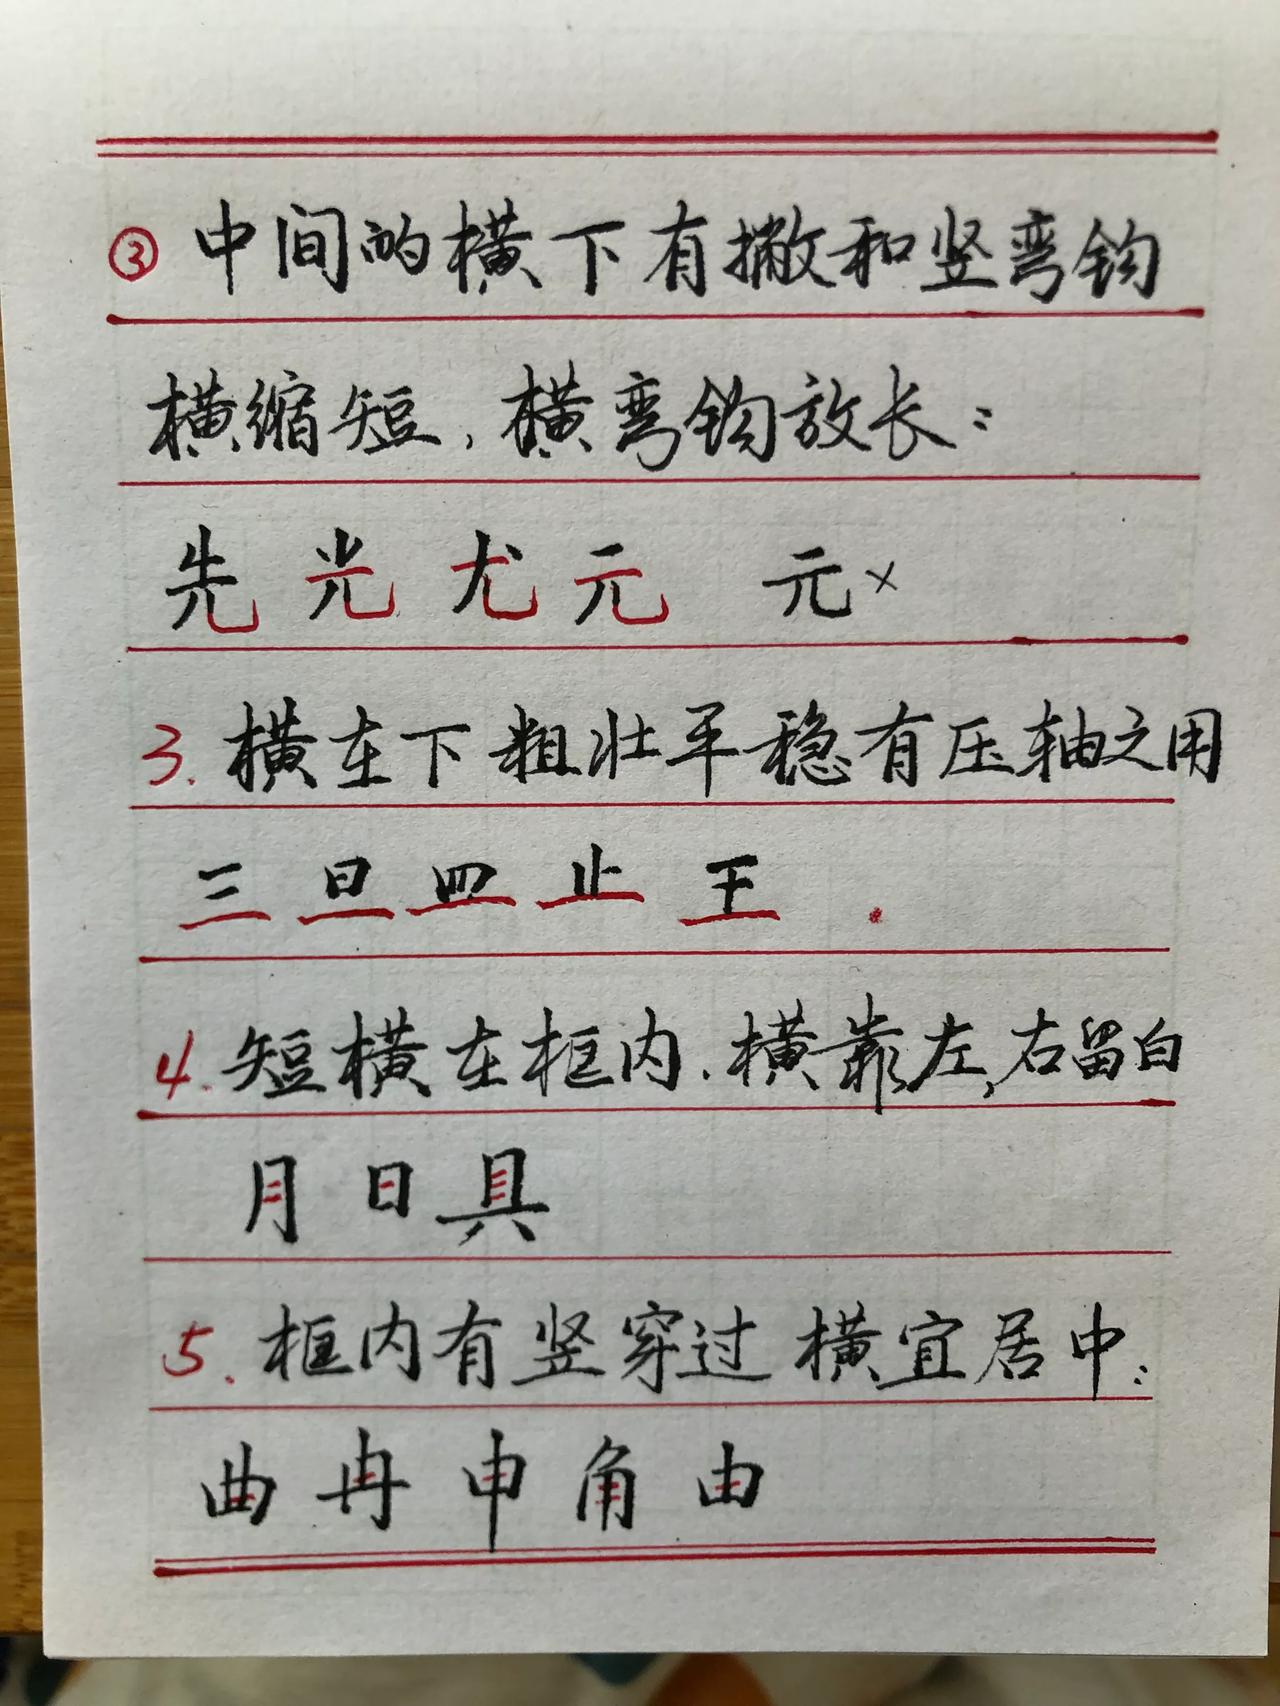 ③ 中间的横下有撇和竖弯钩
横缩短，横弯钩放长：
先 光 尤 元 元×
3. 横在下粗壮平稳有压轴之用
三 旦 四 止 王
4. 短横在框内．横靠左，右留白
月 日 具
5. 框内有竖穿过 横宜居中：
曲 冉 申 角 由